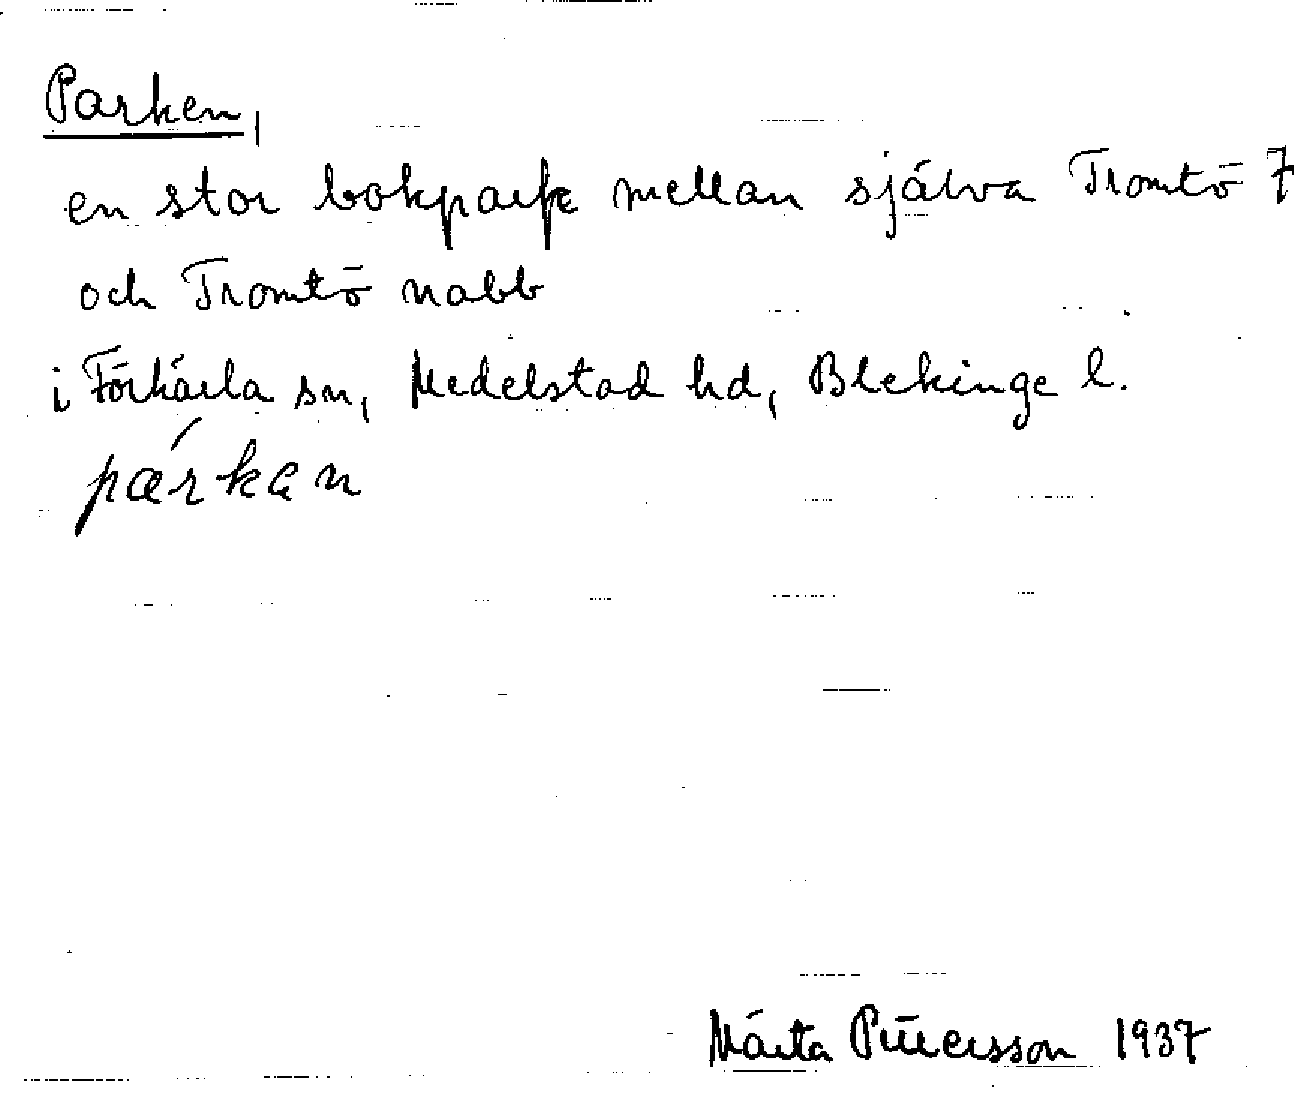 Parken,
en stor bokpark mellan själva Tromtö 7
och Tromtö nabb
i Förkärla sn, Medelstad hd, Blekinge l.
pærkan
Märta Petersson 1937